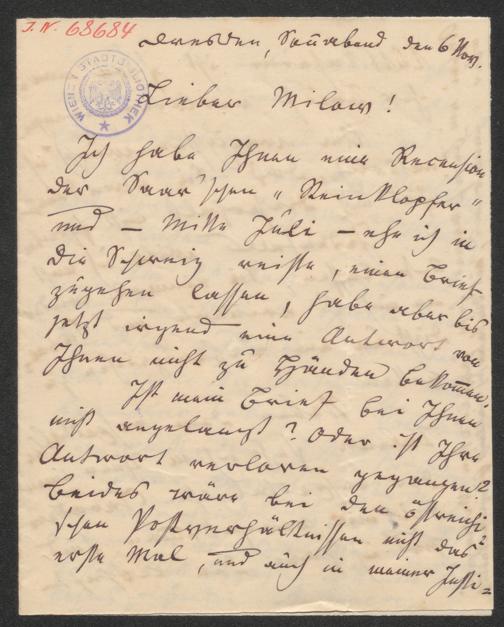 J. N. 68684
WIENER STADTBIBLIOTHEK
Dresden, Sonnabend den 6 Nov.
Lieber Milow!
Ich habe Ihnen eine Recension
der Saar'schen „Steinklopfer“
und — Mitte Juli — ehe ich in
die Schweiz reiste, einen Brief
zugehen lassen, habe aber bis
jetzt irgend eine Antwort von
Ihnen nicht zu Händen bekommen.
Ist mein Brief bei Ihnen
nicht angelangt? Oder ist Ihre
Antwort verloren gegangen?
Beides wäre bei den östreichi
schen Postverhältnissen nicht das
erste Mal, und auch in meiner